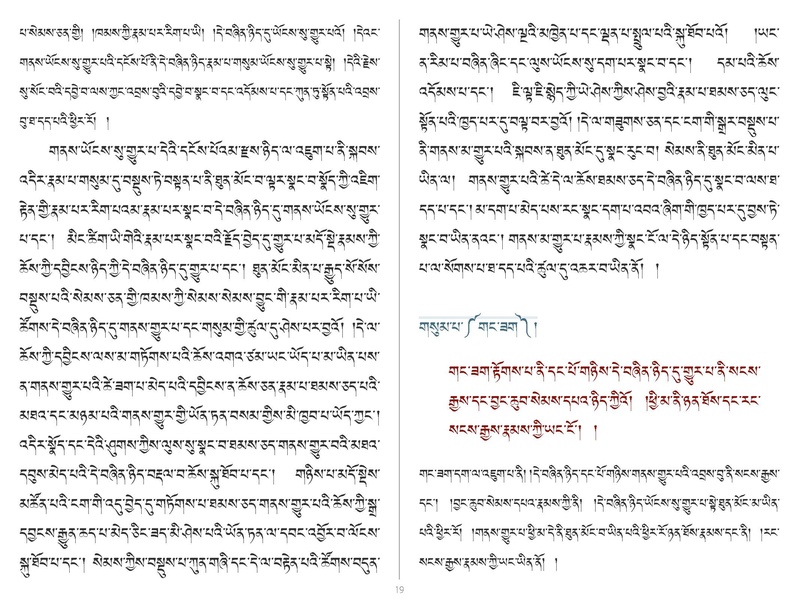 པ་སེམས་ཅན་གྱི། །ཁམས་ཀྱི་རྣམ་པར་རིག་པ་ཡི། །དེ་བཞིན་ཉིད་དུ་ཡོངས་སུ་གྱུར་པའོ། །དེའང་
གནས་ཡོངས་སུ་གྱུར་པའི་དངོས་པོ་ནི་དེ་བཞིན་ཉིད་རྣམ་པ་གསུམ་ཡོངས་སུ་གྱུར་པ་སྟེ། །དེའི་རྗེས་
སུ་སོང་བའི་དབྱེ་བ་ལས་ཀྱང་འབྲས་བུའི་དབྱེ་བ་སྣང་བ་དང་འདོམས་པ་དང་ཀུན་ཏུ་སྟོན་པའི་འབྲས་
བུ་ཐ་དད་པའི་ཕྱིར་རོ། །
གནས་ཡོངས་སུ་གྱུར་པ་དེའི་དངོས་པོའམ་རྫས་ཉིད་ལ་འཇུག་པ་ནི་སྐབས་
འདིར་རྣམ་པ་གསུམ་དུ་བསྡུས་ཏེ་བསྟན་པ་ནི་ཐུན་མོང་བ་ལྟར་སྣང་བ་སྣོད་ཀྱི་འཇིག་
རྟེན་གྱི་རྣམ་པར་རིག་པའམ་རྣམ་པར་སྣང་བ་དེ་བཞིན་ཉིད་དུ་གནས་ཡོངས་སུ་གྱུར་
པ་དང་། མིང་ཚིག་ཡི་གེའི་རྣམ་པར་སྣང་བའི་རྗོད་བྱེད་དུ་གྱུར་པ་མདོ་སྡེ་རྣམས་ཀྱི་
ཆོས་ཀྱི་དབྱིངས་ཉིད་ཀྱི་དེ་བཞིན་ཉིད་དུ་གྱུར་པ་དང་། ཐུན་མོང་མིན་པ་རྒྱུད་སོ་སོས་
བསྡུས་པའི་སེམས་ཅན་གྱི་ཁམས་ཀྱི་སེམས་སེམས་བྱུང་གི་རྣམ་པར་རིག་པ་ཡི་
ཚོགས་དེ་བཞིན་ཉིད་དུ་གནས་གྱུར་པ་དང་གསུམ་གྱི་ཚུལ་དུ་ཤེས་པར་བྱའོ། །དེ་ལ་
ཆོས་ཀྱི་དབྱིངས་ལས་མ་གཏོགས་པའི་ཆོས་འགའ་ཙམ་ཡང་ཡོད་པ་མ་ཡིན་པས་
ན་གནས་གྱུར་པའི་ཚེ་ཟག་པ་མེད་པའི་དབྱིངས་ན་ཆོས་ཅན་རྣམ་པ་ཐམས་ཅད་པའི་
མཐའ་དང་མཉམ་པའི་གནས་གྱུར་གྱི་ཡོན་ཏན་བསམ་གྱིས་མི་ཁྱབ་པ་ཡོད་ཀྱང་།
འདིར་སྣོད་དང་དེའི་ཤུགས་ཀྱིས་ལུས་སུ་སྣང་བ་ཐམས་ཅད་གནས་གྱུར་བའི་མཐའ་
དབུས་མེད་པའི་དེ་བཞིན་ཉིད་བརྡལ་བ་ཆོས་སྐུ་ཐོབ་པ་དང་། གཉིས་པ་མདོ་སྡེས་
མཚོན་པའི་ངག་གི་འདུ་བྱེད་དུ་གཏོགས་པ་ཐམས་ཅད་གནས་གྱུར་པའི་ཆོས་ཀྱི་སྒྲ་
དབྱངས་རྒྱུན་ཆད་པ་མེད་ཅིང་ཟད་མི་ཤེས་པའི་ཡོན་ཏན་ལ་དབང་འབྱོར་བ་ལོངས་
སྐུ་ཐོབ་པ་དང་། སེམས་ཀྱིས་བསྡུས་པ་ཀུན་གཞི་དང་དེ་ལ་བརྟེན་པའི་ཚོགས་བདུན་
གནས་གྱུར་པ་ཡེ་ཤེས་ལྔའི་མཁྱེན་པ་དང་ལྡན་པ་སྤྲུལ་པའི་སྐུ་ཐོབ་པའོ། །ཡང་
ན་རིམ་པ་བཞིན་ཞིང་དང་ལུས་ཡོངས་སུ་དག་པར་སྣང་བ་དང་། དམ་པའི་ཆོས་
འདོམས་པ་དང་། ཇི་ལྟ་ཇི་སྙེད་ཀྱི་ཡེ་ཤེས་ཀྱིས་ཤེས་བྱའི་རྣམ་པ་ཐམས་ཅད་ལུང་
སྟོན་པའི་ཁྱད་པར་དུ་བལྟ་བར་བྱའོ། །དེ་ལ་གཟུགས་ཅན་དང་ངག་གི་སྒྲར་བསྡུས་པ་
ནི་གནས་མ་གྱུར་པའི་སྐབས་ན་ཐུན་མོང་དུ་སྣང་རུང་བ། སེམས་ནི་ཐུན་མོང་མིན་པ་
ཡིན་ལ། གནས་གྱུར་པའི་ཚེ་དེ་ལ་ཆོས་ཐམས་ཅད་དེ་བཞིན་ཉིད་དུ་སྣང་བ་ལས་ཐ་
དད་པ་དང་། མ་དག་པ་མེད་པས་རང་སྣང་དག་པ་འབའ་ཞིག་གི་ཁྱད་པར་དུ་བྱས་ཏེ་
སྣང་བ་ཡིན་ནའང་། གནས་མ་གྱུར་པ་རྣམས་ཀྱི་སྣང་ངོ་ལ་དེ་ཉིད་སྟོན་པ་དང་བསྟན་
པ་ལ་སོགས་པ་ཐ་དད་པའི་ཚུལ་དུ་འཆར་བ་ཡིན་ནོ། །
གསུམ་པ་༼གང་ཟག༽།
གང་ཟག་རྟོགས་པ་ནི་དང་པོ་གཉིས་དེ་བཞིན་ཉིད་དུ་གྱུར་པ་ནི་སངས་
རྒྱས་དང་བྱང་ཆུབ་སེམས་དཔའ་ཉིད་ཀྱིའོ། །ཕྱི་མ་ནི་ཉན་ཐོས་དང་རང་
སངས་རྒྱས་རྣམས་ཀྱི་ཡང་ངོ་། །
གང་ཟག་དག་ལ་འཇུག་པ་ནི། །དེ་བཞིན་ཉིད་དང་པོ་གཉིས་གནས་གྱུར་པའི་འབྲས་བུ་ནི་སངས་རྒྱས་
དང་། །བྱང་ཆུབ་སེམས་དཔའ་རྣམས་ཀྱི་ནི། །དེ་བཞིན་ཉིད་ཡོངས་སུ་གྱུར་པ་སྟེ་ཐུན་མོང་མ་ཡིན་
པའི་ཕྱིར་རོ། །གནས་གྱུར་པ་ཕྱི་མ་དེ་ནི་ཐུན་མོང་བ་ཡིན་པའི་ཕྱིར་རོ་ཉན་ཐོས་རྣམས་དང་ནི། །རང་
སངས་རྒྱས་རྣམས་ཀྱི་ཡང་ཡིན་ནོ། །
19